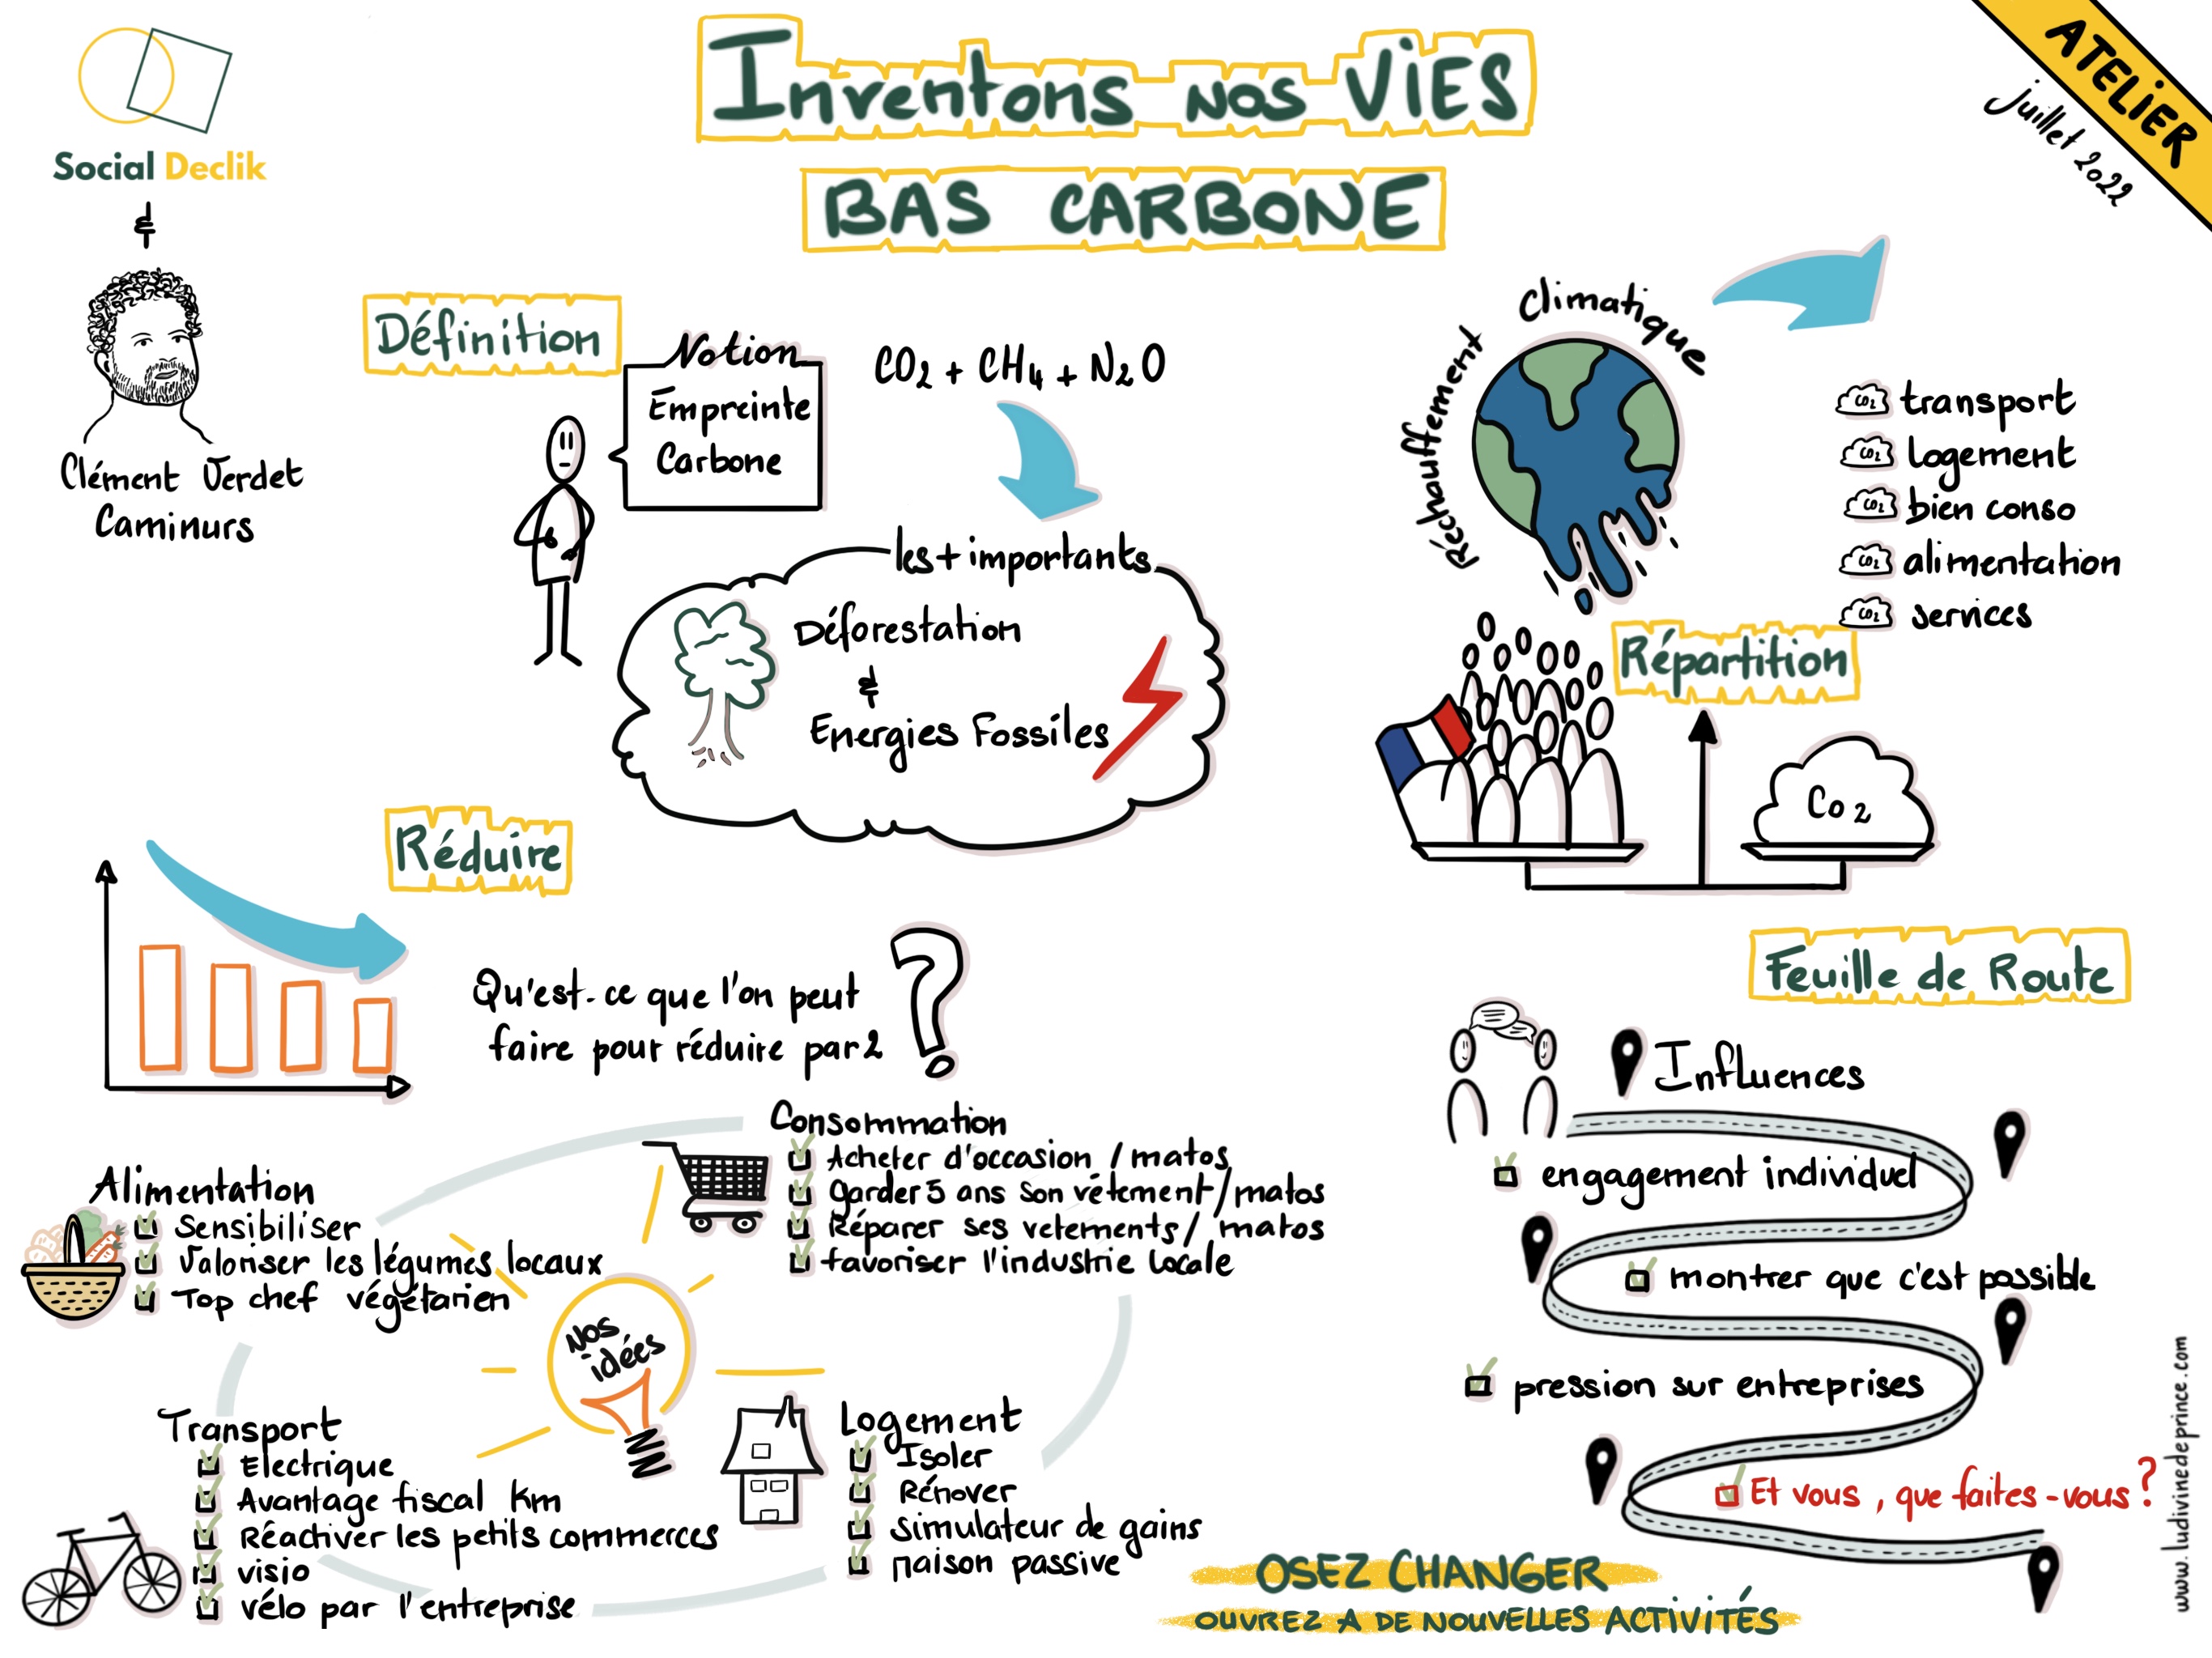 Inventons nos ViES
BAS CARBONE
ATELiER
juillet 2022
Social Declik
&
Clément Verdet
Caminurs
Définition
Notion
Empreinte
Carbone
CO2 + CH4 + N2O
les + importants
Déforestation
&
Energies Fossiles
Réchauffement climatique
CO2 transport
CO2 logement
CO2 bien conso
CO2 alimentation
CO2 services
Répartition
Co2
Réduire
Qu'est-ce que l'on peut
faire pour réduire par 2
?
Alimentation
Sensibiliser
Valoriser les légumes locaux
Top chef végétarien
Consommation
Acheter d'occasion / matos
Garder 5 ans son vêtement/matos
Réparer ses vetements/ matos
favoriser l'industrie locale
Nos
idées
Transport
Electrique
Avantage fiscal km
Réactiver les petits commerces
visio
vélo par l'entreprise
Logement
Isoler
Rénover
simulateur de gains
maison passive
Feuille de Route
Influences
engagement individuel
montrer que c'est possible
pression sur entreprises
Et vous, que faites-vous ?
OSEZ CHANGER
OUVREZ A DE NOUVELLES ACTIVITÉS
www.ludivinedeprince.com